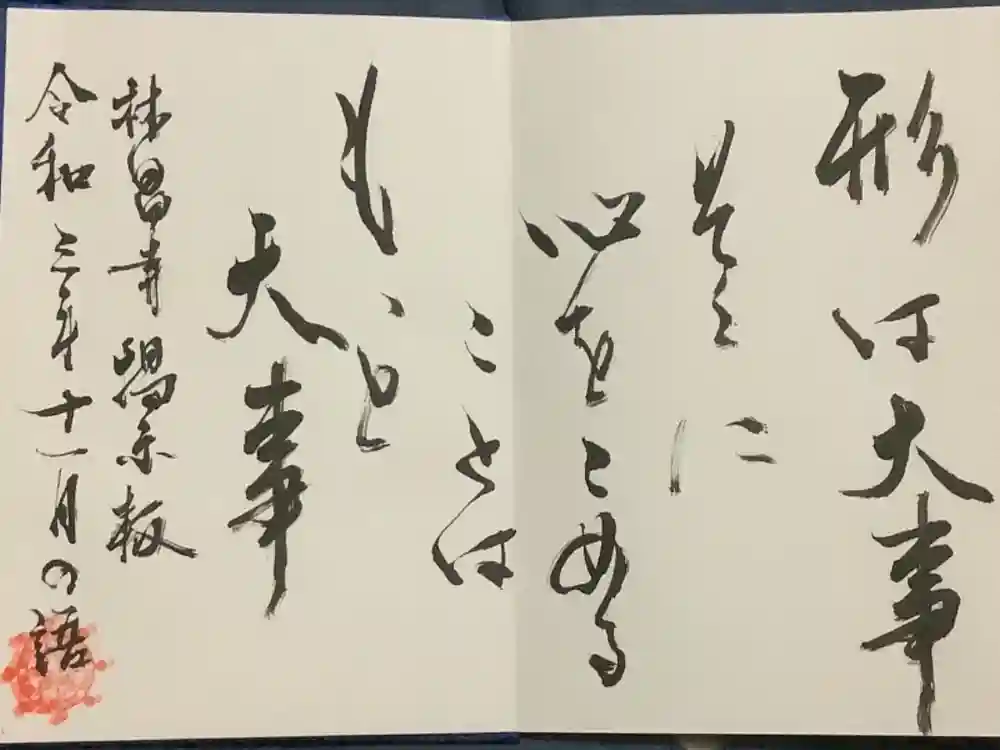 形は大事
是に
心をこめる
ことは
もっと
大事
林昌寺 掲示板
令和三年十一月の語